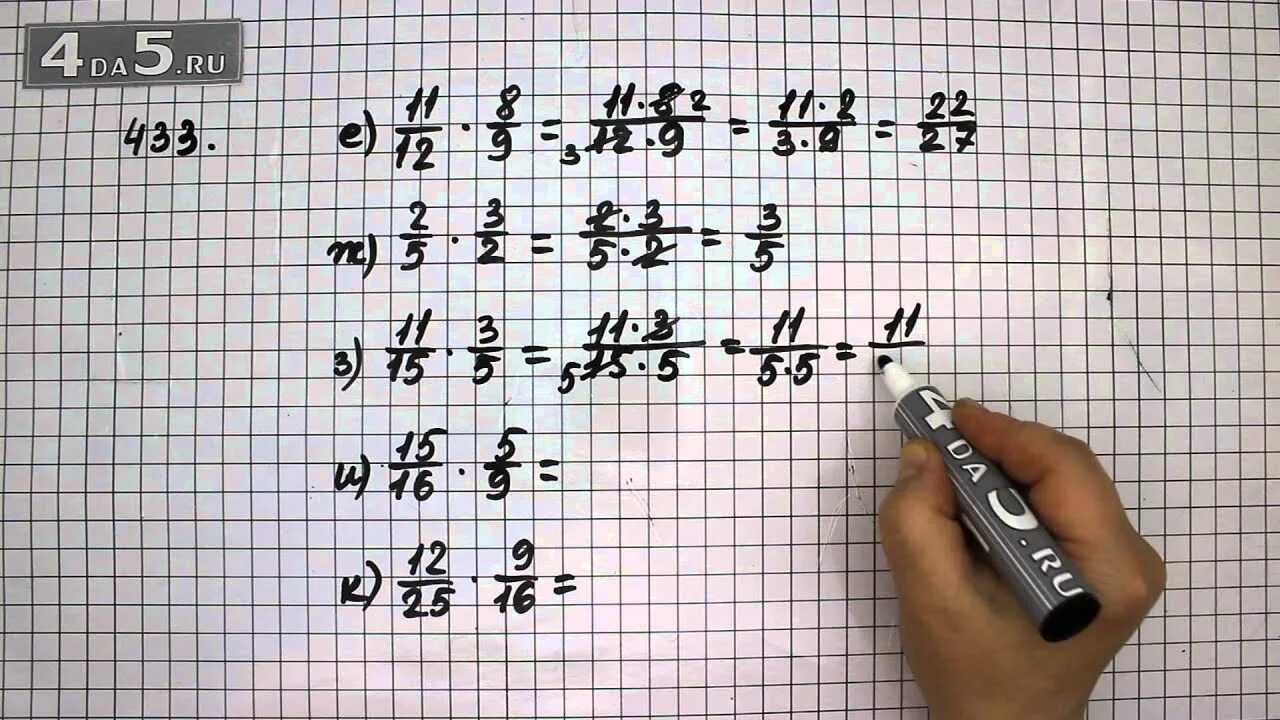 4DA5.RU
433.
е) 11/12 · 8/9 = 11·8 2 / 3 12·9 = 11·2/3·9 = 22/27
ж) 2/5 · 3/2 = 2·3/5·2 = 3/5
з) 11/15 · 3/5 = 11·3 / 5 15·5 = 11/5·5 = 11/
и) 15/16 · 5/9 =
к) 12/25 · 9/16 =
4DA5.RU